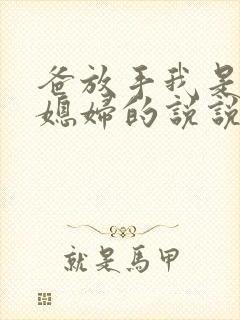 爸放手我是
媳婦的説説
就是馬甲